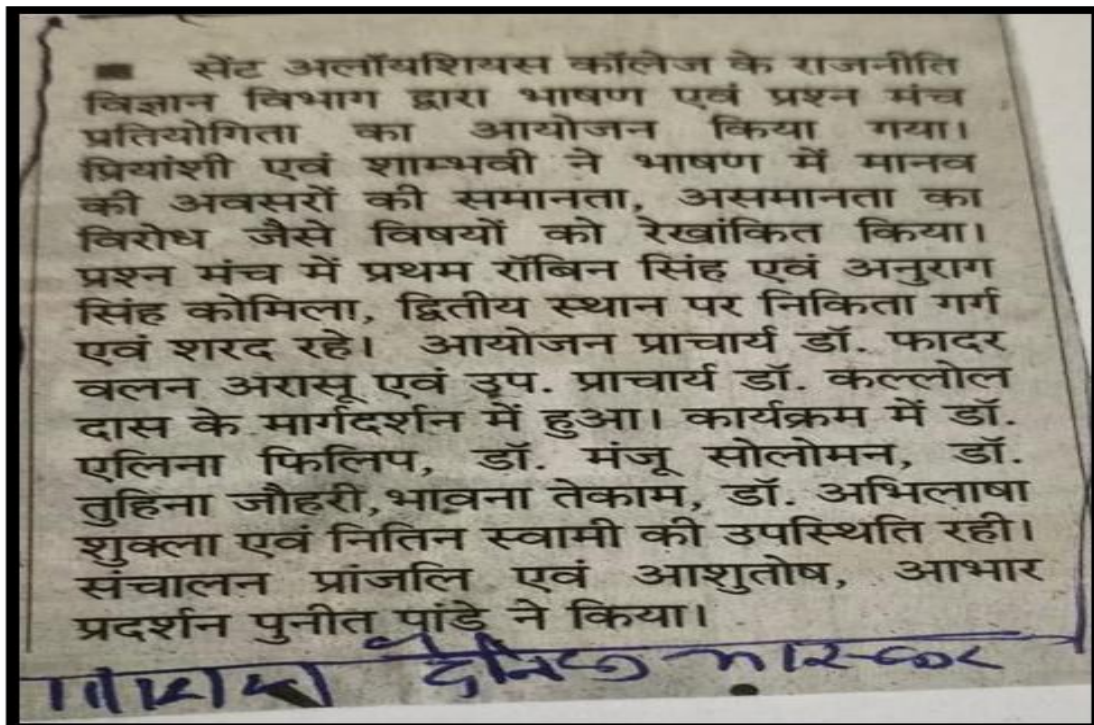 सेंट अलॉयशियस कॉलेज के राजनीति
विज्ञान विभाग द्वारा भाषण एवं प्रश्न मंच
प्रतियोगिता का आयोजन किया गया।
प्रियांशी एवं शाम्भवी ने भाषण में मानव
की अवसरों की समानता, असमानता का
विरोध जैसे विषयों को रेखांकित किया।
प्रश्न मंच में प्रथम रॉबिन सिंह एवं अनुराग
सिंह कोमिला, द्वितीय स्थान पर निकिता गर्ग
एवं शरद रहे। आयोजन प्राचार्य डॉ. फादर
वलन अरासू एवं उप. प्राचार्य डॉ. कल्लोल
दास के मार्गदर्शन में हुआ। कार्यक्रम में डॉ.
एलिना फिलिप, डॉ. मंजू सोलोमन, डॉ.
तुहिना जौहरी, भावना तेकाम, डॉ. अभिलाषा
शुक्ला एवं नितिन स्वामी की उपस्थिति रही।
संचालन प्रांजलि एवं आशुतोष, आभार
प्रदर्शन पुनीत पांडे ने किया।
दैनिक भास्कर